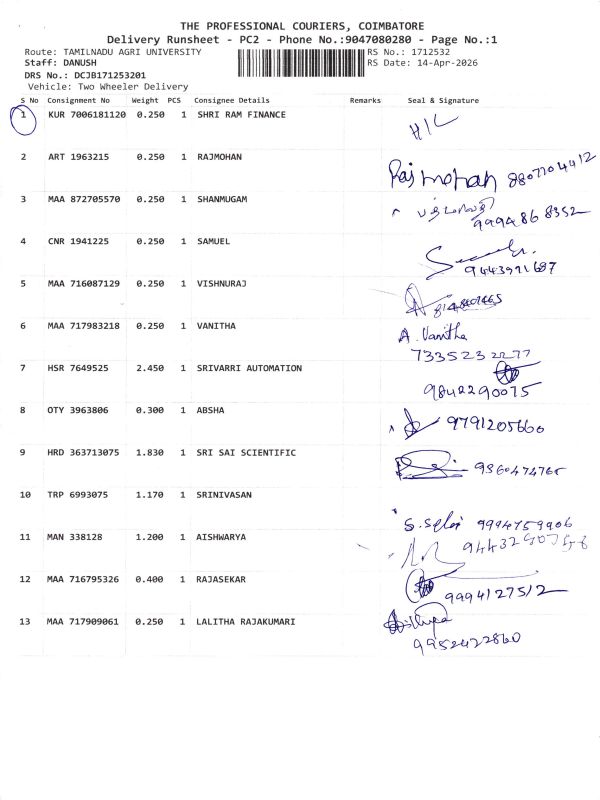 THE PROFESSIONAL COURIERS, COIMBATORE
Delivery Runsheet - PC2 - Phone No.:9047080280 - Page No.:1
Route: TAMILNADU AGRI UNIVERSITY RS No.: 1712532
Staff: DANUSH RS Date: 14-Apr-2026
DRS No.: DCJB171253201
Vehicle: Two Wheeler Delivery
S No Consignment No Weight PCS Consignee Details Remarks Seal & Signature
1 KUR 7006181120 0.250 1 SHRI RAM FINANCE H/L
2 ART 1963215 0.250 1 RAJMOHAN Rajmohan 8807704412
3 MAA 872705570 0.250 1 SHANMUGAM
9994868352
4 CNR 1941225 0.250 1 SAMUEL
9443971687
5 MAA 716087129 0.250 1 VISHNURAJ
6 MAA 717983218 0.250 1 VANITHA A. Vanitha
7335232277
7 HSR 7649525 2.450 1 SRIVARRI AUTOMATION
9842290075
8 OTY 3963806 0.300 1 ABSHA 9791205660
9 HRD 363713075 1.830 1 SRI SAI SCIENTIFIC 9360474765
10 TRP 6993075 1.170 1 SRINIVASAN
S. Selvi 9994759906
11 MAN 338128 1.200 1 AISHWARYA
12 MAA 716795326 0.400 1 RAJASEKAR 9994127512
13 MAA 717909061 0.250 1 LALITHA RAJAKUMARI
9952422860